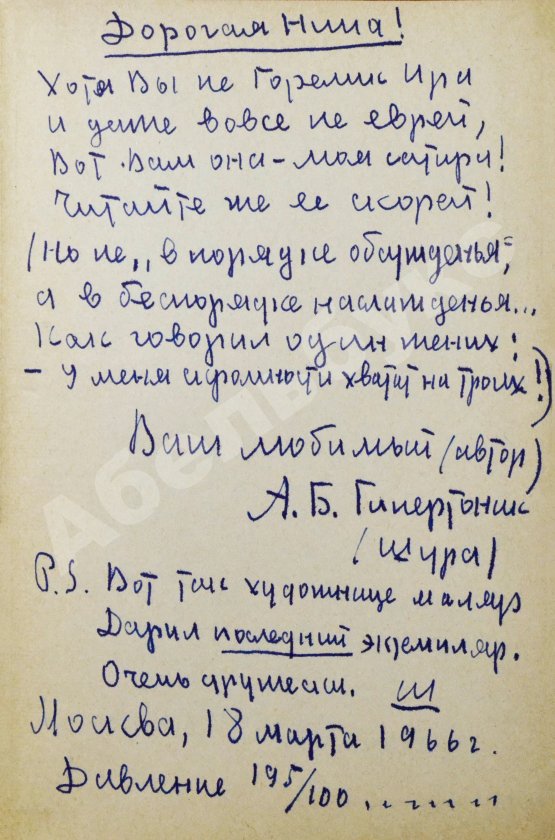 Дорогая Нина!
Хотя Вы не Горелик Ира
и даже вовсе не еврей,
Вот Вам она – моя сатира!
Читайте же ее скорей!
(Но не „в порядке обсужденья“,
а в беспорядке наслажденья...
Как говорил один жених:
– У меня скромности хватит на троих!)
Ваш любимый (автор)
А. Б. Гипертоник
(Шура)
P.S. Вот так художнице маляр
Дарил последний экземпляр.
Очень дружески. Ш
Москва, 18 марта 1966 г.
Давление 195/100 .......
Абельбукс